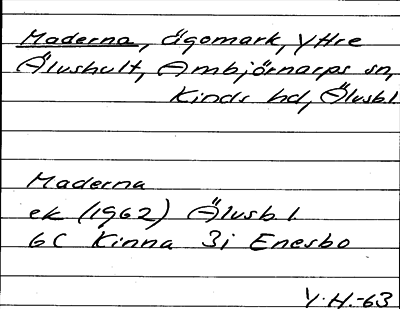 Maderna, ägomark, Yttre
Älvshult, Ambjörnarps sn,
Kinds hd, Älvsb.l.
Maderna
ek (1962) Älvsb.l.
6C Kinna 3i Enesbo
Y.H.-63